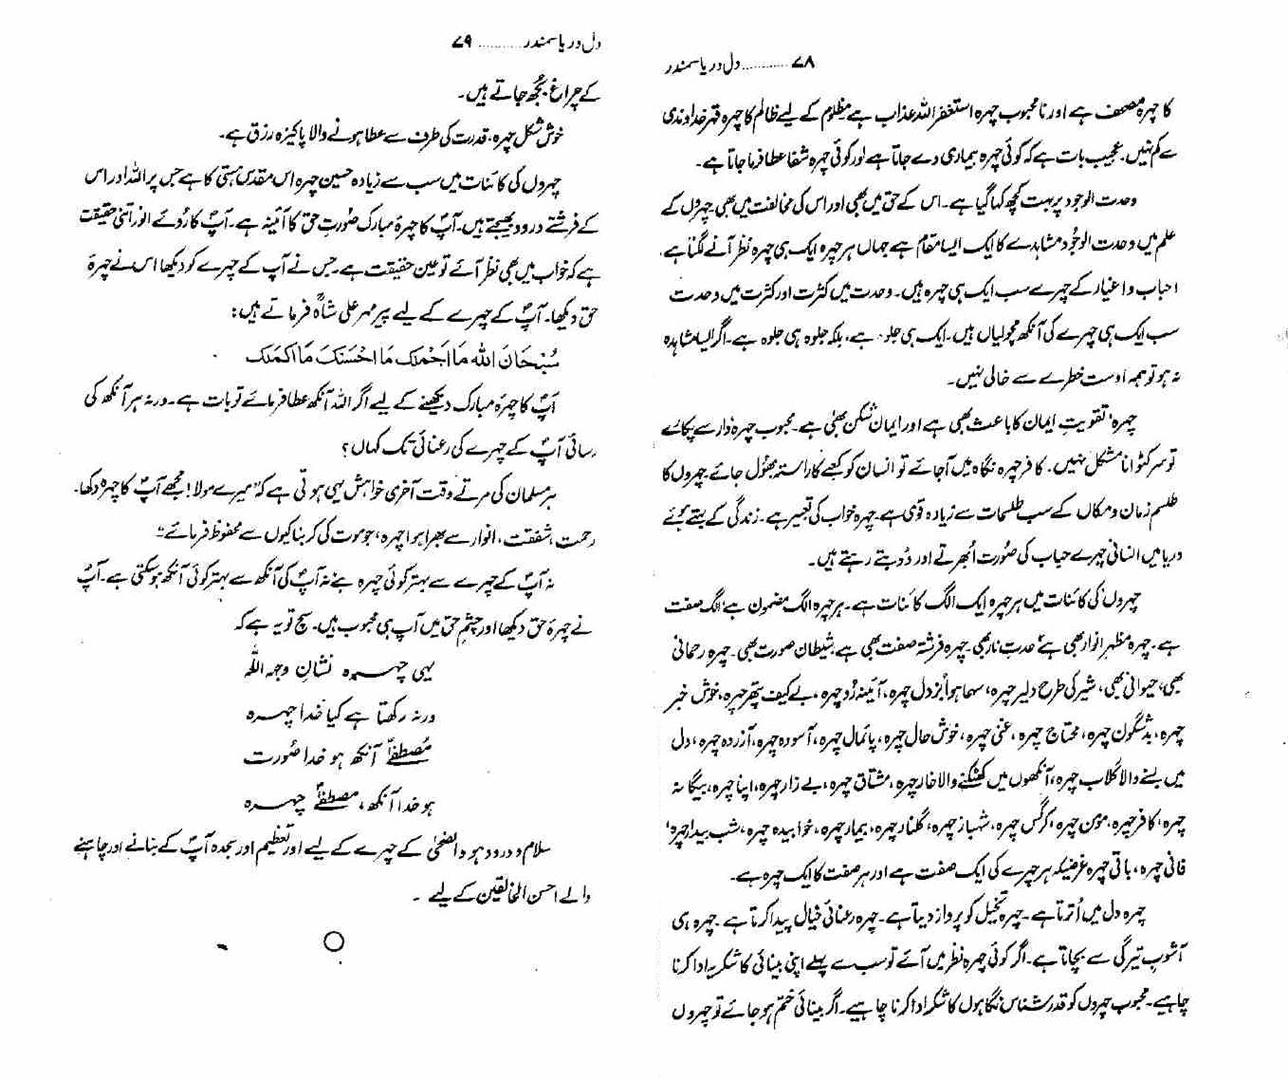 ۷۸ ............ دل دریا سمندر
کا چہرہ مصحف ہے اور نا محبوب چہرہ استغفر اللہ عذاب ہے مظلوم کے لیے ظالم کا چہرہ قہر خداوندی
سے کم نہیں۔ عجیب بات ہے کہ کوئی چہرہ بیماری دے جاتا ہے اور کوئی چہرہ شفا عطا فرما جاتا ہے۔
وحدت الوجود پر بہت کچھ کہا گیا ہے۔ اس کے حق میں بھی اور اس کی مخالفت میں بھی۔ چہروں کے
علم میں وحدت الوجُود مشاہدے کا ایک ایسا مقام ہے جہاں ہر چہرہ ایک ہی چہرہ نظر آنے لگتا ہے۔
احباب و اغیار کے چہرے سب ایک ہی چہرہ ہیں۔ وحدت میں کثرت اور کثرت میں وحدت
سب ایک ہی چہرے کی آنکھ مچولیاں ہیں۔ ایک ہی جلوہ ہے، بلکہ جلوہ ہی جلوہ ہے۔ اگر ایسا مشاہدہ
نہ ہو تو ہمہ اوست خطرے سے خالی نہیں۔
چہرہ، تقویتِ ایمان کا باعث بھی ہے اور ایمان شکن بھی ہے۔ محبوب چہرہ دار سے پکارے
تو سر کٹوانا مشکل نہیں۔ کافر چہرہ نگاہ میں آ جائے تو انسان کو کعبے کا راستہ بھُول جائے۔ چہروں کا
طلسم زمان و مکاں کے سب طلسمات سے زیادہ قوی ہے۔ چہرہ خواب کی تعبیر ہے۔ زندگی کے بہتے ہُوئے
دریا میں انسانی چہرے حباب کی صُورت اُبھرتے اور ڈوبتے رہتے ہیں۔
چہروں کی کائنات میں ہر چہرہ ایک الگ کائنات ہے۔ ہر چہرہ الگ مضمون ہے الگ صفت
ہے۔ چہرہ مظہرِ انوار بھی ہے حدتِ نار بھی۔ چہرہ فرشتہ صفت بھی ہے شیطان صورت بھی۔ چہرہ رحمانی
بھی، حیوانی بھی، شیر کی طرح دلیر چہرہ، سہما ہوا بزدل چہرہ، آئینہ رُو چہرہ، بے کیف پتھر چہرہ، خوش خبر
چہرہ، بدشگون چہرہ، محتاج چہرہ، غنی چہرہ، خوش حال چہرہ، پائمال چہرہ، آسودہ چہرہ، آزردہ چہرہ، دل
میں بسنے والا گلاب چہرہ، آنکھوں میں کھٹکنے والا خار چہرہ، مشتاق چہرہ، بے زار چہرہ، اپنا چہرہ، بیگانہ
چہرہ، کافر چہرہ، مومن چہرہ، کرگس چہرہ، شہباز چہرہ، گلنار چہرہ، بیمار چہرہ، خوابیدہ چہرہ، شب بیدار چہرہ،
فانی چہرہ، باقی چہرہ غرضیکہ ہر چہرے کی ایک صفت ہے اور ہر صفت کا ایک چہرہ ہے۔
چہرہ دل میں اُترتا ہے۔ چہرہ تخیل کو پرواز دیتا ہے۔ چہرہ رعنائی خیال پیدا کرتا ہے۔ چہرہ ہی
آشوبِ تیرگی سے بچاتا ہے۔ اگر کوئی چہرہ نظر میں آئے تو سب سے پہلے اپنی بینائی کا شکریہ ادا کرنا
چاہیے۔ محبوب چہروں کو قدر شناس نگاہوں کا شکر ادا کرنا چاہیے۔ اگر بینائی ختم ہو جائے تو چہروں
دل دریا سمندر ............ ۷۹
کے چراغ بجُھ جاتے ہیں۔
خوش شکل چہرہ، قدرت کی طرف سے عطا ہونے والا پاکیزہ رزق ہے۔
چہروں کی کائنات میں سب سے زیادہ حسین چہرہ اس مقدس ہستی کا ہے جس پر اللہ اور اس
کے فرشتے درود بھیجتے ہیں۔ آپؐ کا چہرۂ مبارک صُورتِ حق کا آئینہ ہے۔ آپؐ کا رُوئے انور اتنی حقیقت
ہے کہ خواب میں بھی نظر آئے تو عین حقیقت ہے۔ جس نے آپ کے چہرے کو دیکھا اس نے چہرۂ
حق دیکھا۔ آپؐ کے چہرے کے لیے پیر مہر علی شاہؒ فرماتے ہیں:
سُبْحَانَ اللہ مَا اَجْمَلَکَ مَا اَحْسَنَکَ مَا اَکْمَلَکَ
آپؐ کا چہرہ مبارک دیکھنے کے لیے اگر اللہ آنکھ عطا فرمائے تو بات ہے۔ ورنہ ہر آنکھ کی
رسائی آپؐ کے چہرے کی رعنائی تک کہاں؟
ہر مسلمان کی مرتے وقت آخری خواہش یہی ہوتی ہے کہ ”میرے مولا! مجھے آپؐ کا چہرہ دکھا۔
رحمت، شفقت، انوار سے بھرا ہوا چہرہ، جو موت کی کربناکیوں سے محفوظ فرمائے“
نہ آپؐ کے چہرے سے بہتر کوئی چہرہ ہے نہ آپؐ کی آنکھ سے بہتر کوئی آنکھ ہو سکتی ہے۔ آپؐ
نے چہرۂ حق دیکھا اور چشمِ حق میں آپ ہی محبوب ہیں۔ سچ تو یہ ہے کہ
یہی چہرہ نشانِ وجہ اللہ
ورنہ رکھتا ہے کیا خدا چہرہ
مُصطفےٰؐ آنکھ ہو خدا صُورت
ہو خدا آنکھ، مصطفےٰؐ چہرہ
سلام و درود ہو والضحیٰ کے چہرے کے لیے اور تعظیم اور سجدہ آپؐ کے بنانے اور چاہنے
والے احسن الخالقین کے لیے۔